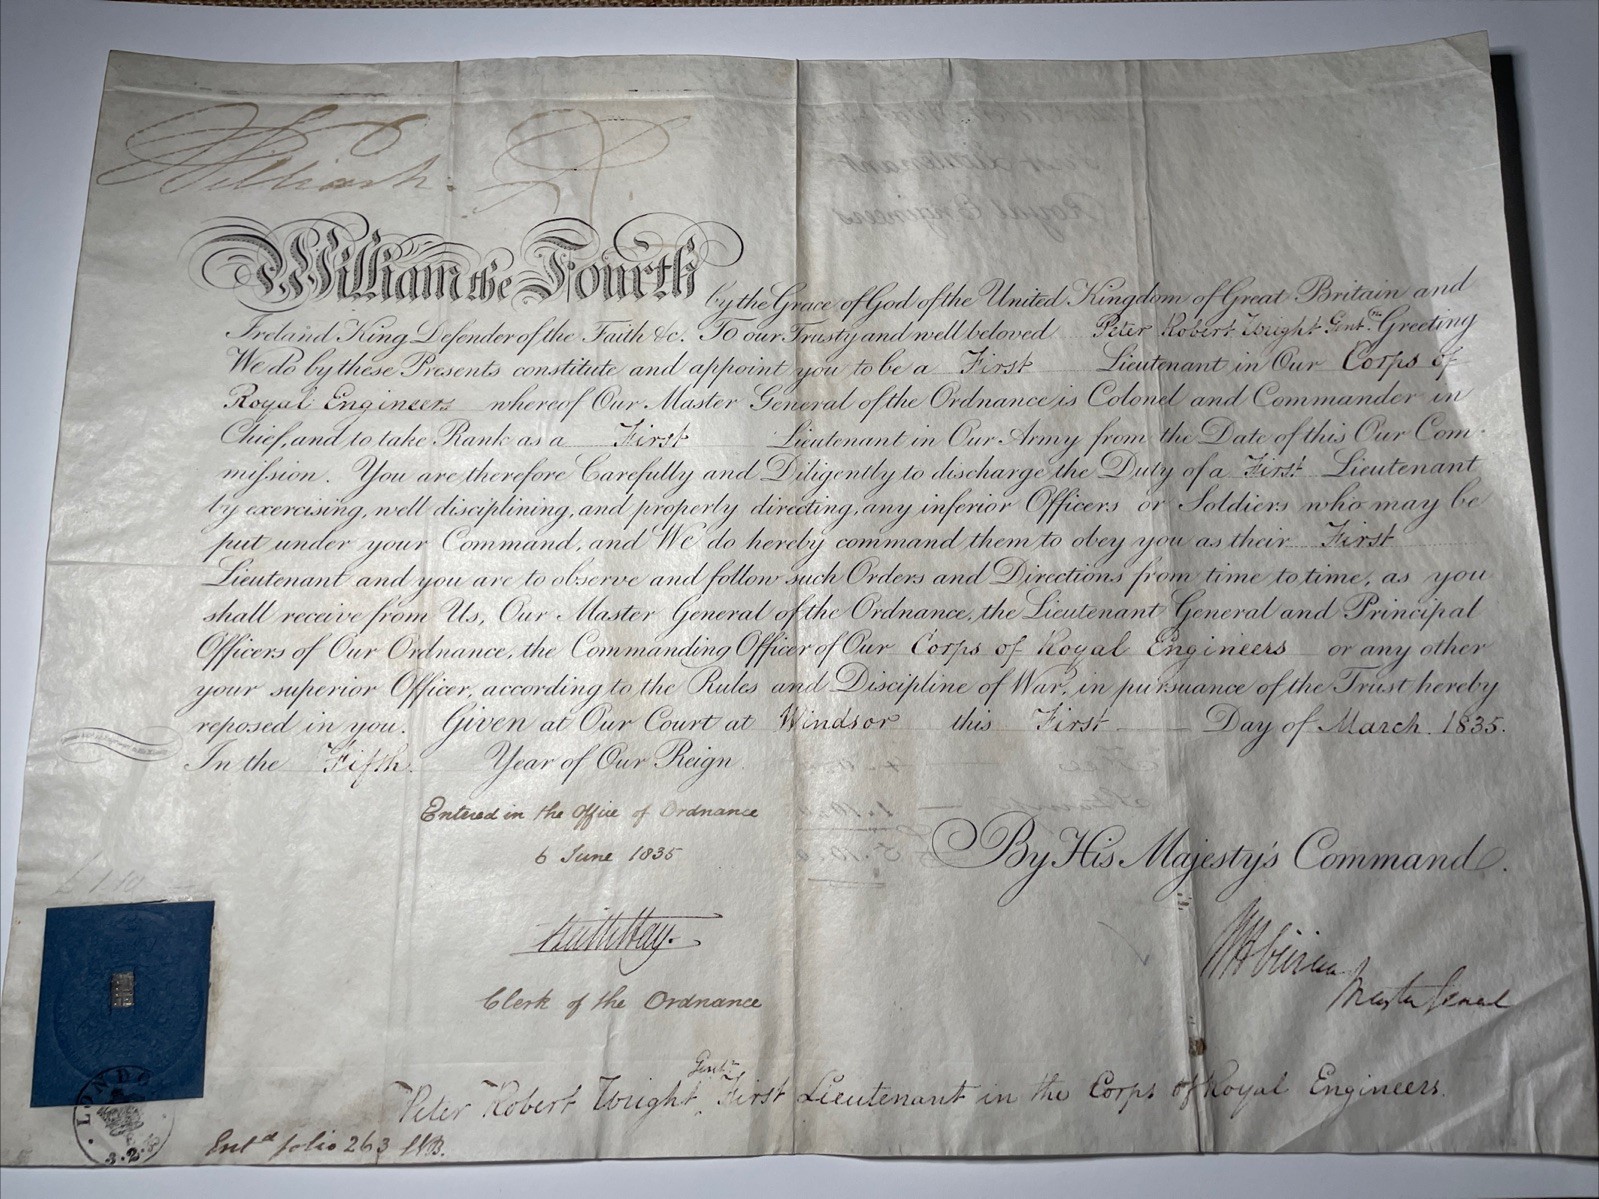 William R
William the Fourth by the Grace of God of the United Kingdom of Great Britain and
Ireland King Defender of the Faith &c. To our Trusty and well beloved Peter Robert Wright Gent.ⁿ Greeting
We do by these Presents constitute and appoint you to be a First Lieutenant in Our Corps of
Royal Engineers whereof Our Master General of the Ordnance is Colonel and Commander in
Chief, and to take Rank as a First Lieutenant in Our Army from the Date of this Our Com-
mission. You are therefore Carefully and Diligently to discharge the Duty of a First Lieutenant
by exercising, well disciplining, and properly directing, any inferior Officers or Soldiers who may be
put under your Command, and We do hereby command them to obey you as their First
Lieutenant and you are to observe and follow such Orders and Directions from time to time, as you
shall receive from Us, Our Master General of the Ordnance, the Lieutenant General and Principal
Officers of Our Ordnance, the Commanding Officer of Our Corps of Royal Engineers or any other
your superior Officer, according to the Rules and Discipline of War, in pursuance of the Trust hereby
reposed in you. Given at Our Court at Windsor this First Day of March 1835.
In the Fifth Year of Our Reign
Entered in the Office of Ordnance
6 June 1835
By His Majesty's Command.
Master General
Clerk of the Ordnance
Peter Robert Wright Gent.ⁿ First Lieutenant in the Corps of Royal Engineers.
LONDO
Ent.ᵈ folio 263